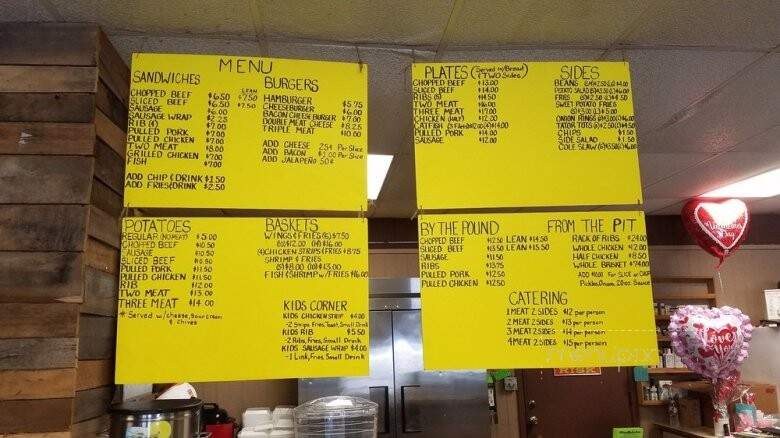 MENU
SANDWICHES
LEAN
CHOPPED BEEF $6.50 $7.50
SLICED BEEF $6.50 $7.50
SAUSAGE $6.00
SAUSAGE WRAP $2.25
RIB $7.00
PULLED PORK $7.00
PULLED CHICKEN $7.00
TWO MEAT $8.00
GRILLED CHICKEN $7.00
FISH $7.00
ADD CHIP & DRINK $1.50
ADD FRIES & DRINK $2.50
BURGERS
HAMBURGER $5.75
CHEESEBURGER $6.00
BACON CHEESE BURGER $7.00
DOUBLE MEAT CHEESE $8.25
TRIPLE MEAT $10.00
ADD CHEESE 25¢ Per Slice
ADD BACON $1.00 Per Slice
ADD JALAPEÑO 50¢
PLATES (Served w/Bread & TWO Sides)
CHOPPED BEEF $13.00
SLICED BEEF $14.00
RIBS $14.50
TWO MEAT $16.00
THREE MEAT $17.00
CHICKEN (HALF) $12.00
CATFISH $14.00
PULLED PORK $14.00
SAUSAGE $12.00
SIDES
BEANS
POTATO SALAD
FRIES
SWEET POTATO FRIES
(S)$3.00 (L)$5.00
ONION RINGS
TATOR TOTS
CHIPS $1.50
SIDE SALAD $1.50
COLE SLAW
POTATOES
REGULAR $5.00
CHOPPED BEEF $10.50
SAUSAGE $10.50
SLICED BEEF
PULLED PORK $11.50
PULLED CHICKEN $11.50
RIB $12.00
TWO MEAT $13.00
THREE MEAT $14.00
* Served w/cheese, sour cream
& chives
BASKETS
WINGS & FRIES (6) $7.50
(12) $12.00 (18) $16.00
(4) CHICKEN STRIPS & FRIES $8.75
SHRIMP & FRIES
(5) $8.00 (10) $13.00
FISH & SHRIMP w/FRIES $16.00
KIDS CORNER
KIDS CHICKEN STRIP $4.00
-2 Strips, Fries, Toast, Small Drink
KIDS RIB $5.50
-2 Ribs, Fries, Small Drink
KIDS SAUSAGE WRAP $4.00
-1 Link, Fries, Small Drink
BY THE POUND
CHOPPED BEEF $12.50 LEAN $14.50
SLICED BEEF $13.50 LEAN $15.50
SAUSAGE $11.50
RIBS $13.75
PULLED PORK $12.50
PULLED CHICKEN $12.50
FROM THE PIT
RACK OF RIBS $24.00
WHOLE CHICKEN $12.00
HALF CHICKEN $8.50
WHOLE BRISKET $74.00
ADD FOR SLICE or CHOP
Pickles, Onion, 20oz. Sauce
CATERING
1 MEAT 2 SIDES $12 per person
2 MEAT 2 SIDES $13 per person
3 MEAT 2 SIDES $14 per person
4 MEAT 2 SIDES $15 per person
I Love You